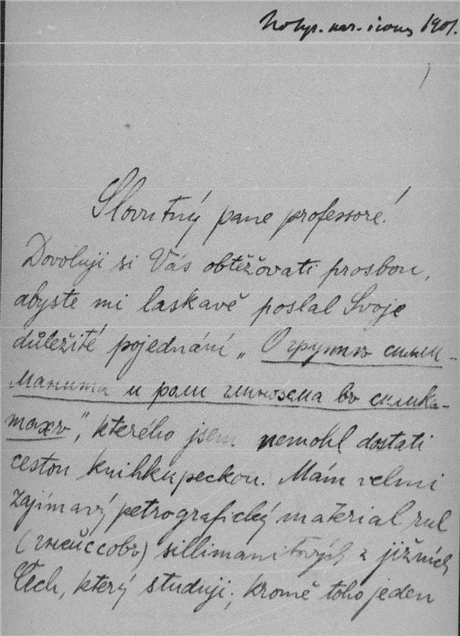 1901.
Slovutný pane professoré!
Dovoluji si Vás obtěžovati prosbou,
abyste mi laskavě poslal Svoje
důležité pojednání „О группѣ силли-
манита и роли глинозема въ силика-
тахъ", kterého jsem nemohl dostati
cestou knihkupeckou. Mám velmi
zajímavý petrografický material rul
(гнейссовъ) sillimanitových z jižních
Čech, který studuji; kromě toho jeden